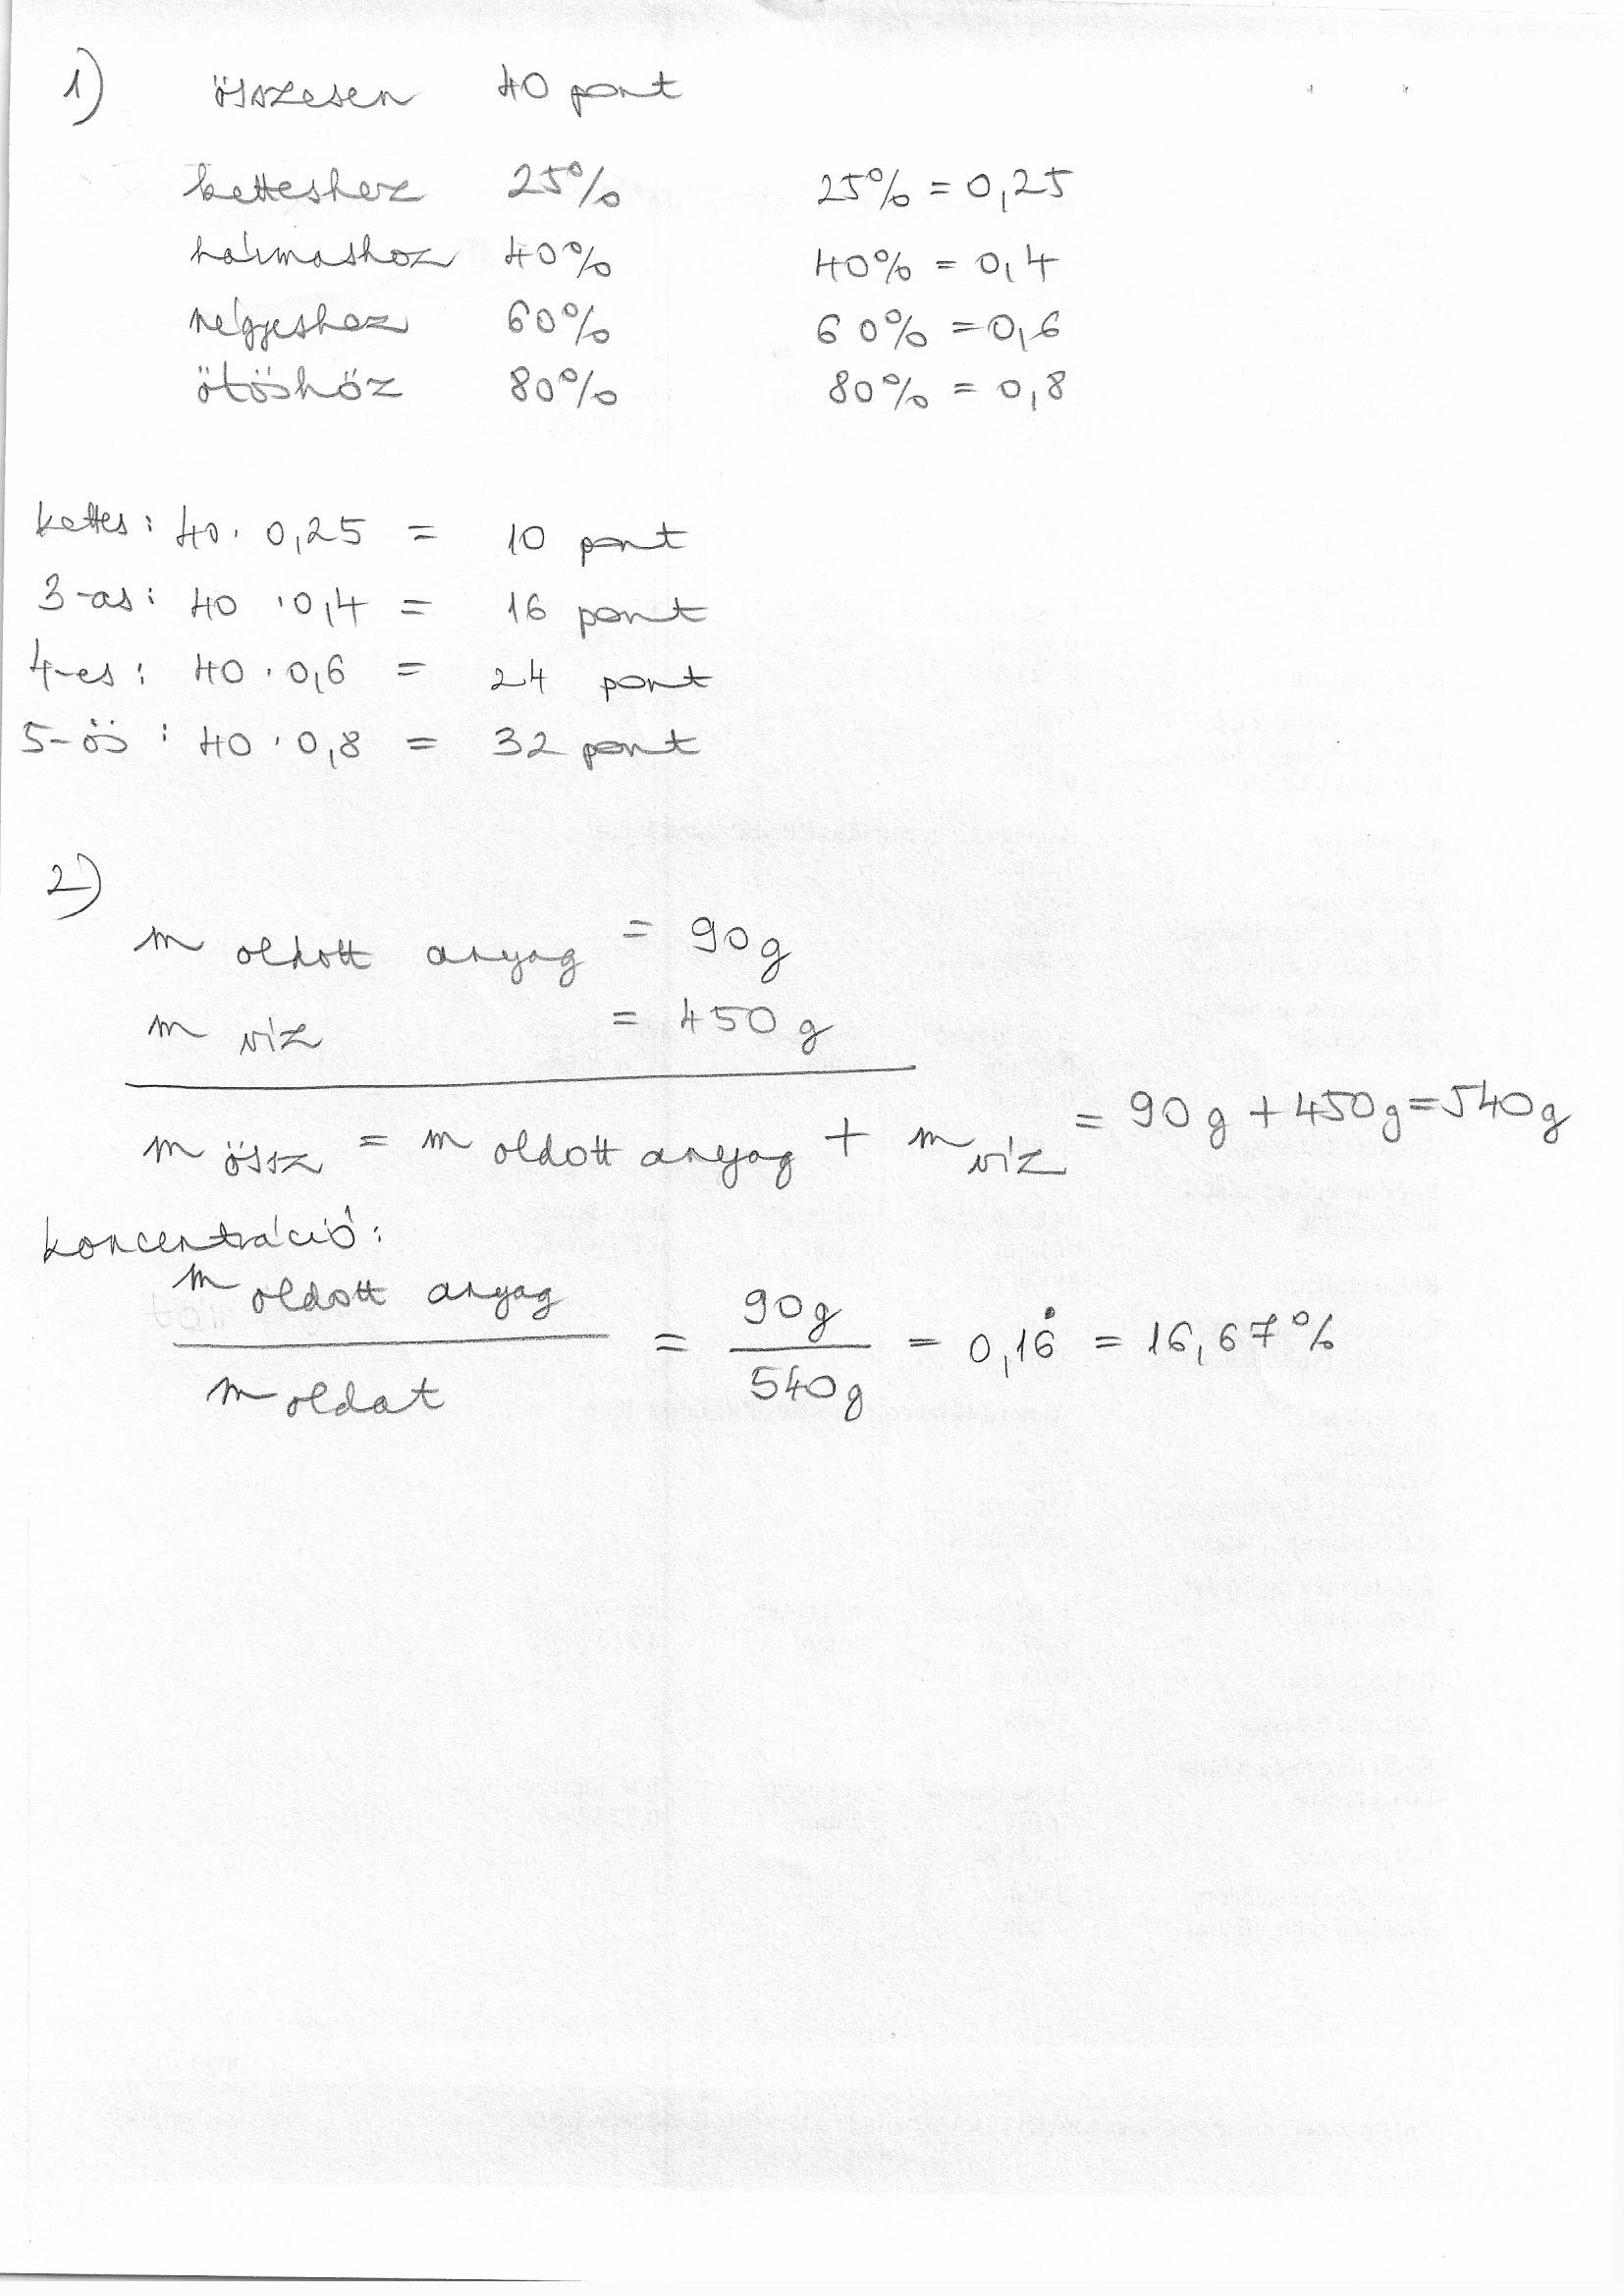 1) összesen 40 pont
ketteshez 25% 25% = 0,25
hármashoz 40% 40% = 0,4
négyeshez 60% 60% = 0,6
ötöshöz 80% 80% = 0,8
kettes: 40 · 0,25 = 10 pont
3-as: 40 · 0,4 = 16 pont
4-es: 40 · 0,6 = 24 pont
5-ös: 40 · 0,8 = 32 pont
2)
m oldott anyag = 90g
m víz = 450g
m össz = m oldott anyag + m víz = 90g + 450g = 540g
koncentráció:
m oldott anyag / m oldat = 90g / 540g = 0,16̇ = 16,67%